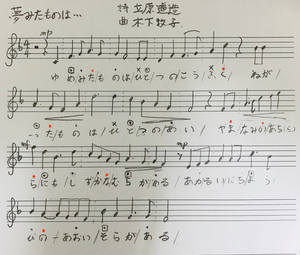 夢みたものは… 詩 立原道造
曲 木下牧子
mp
ゆめみたものは/ひとつのこう/ふく/ ねが/
ったものは/ひとつのあい/ やまなみのあち(ら)
らにも/しずかなむらがある/あかるいにちよう
びの/あおい/そらがある/